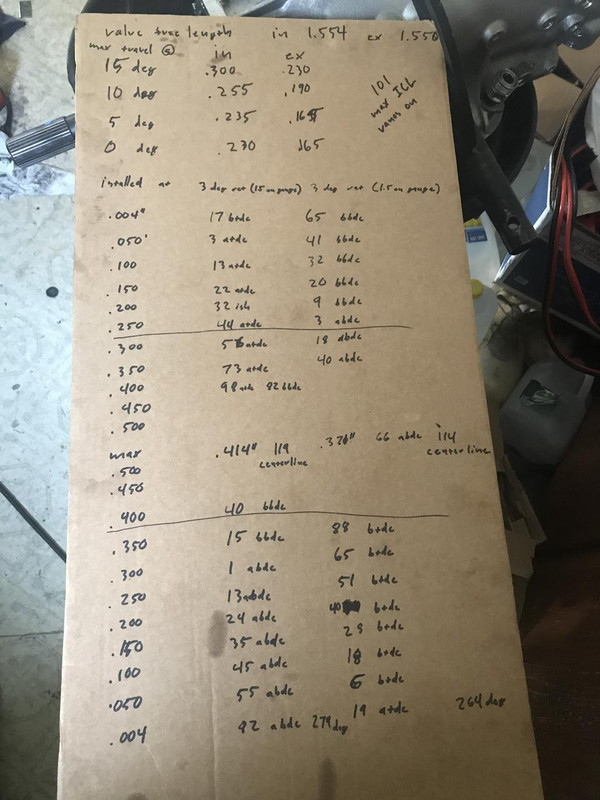 valve free length in 1.554 ex 1.550
max travel @ in ex
15 deg .300 .230
10 deg .255 .190
5 deg .235
0 deg .230 .165
101
max ICL
vanes on
installed at 3 deg ret (1.5 on gauge) 3 deg ret (1.5 on gauge)
.004" 17 btdc 65 bbdc
.050' 3 atdc 41 bbdc
.100 13 atdc 32 bbdc
.150 22 atdc 20 bbdc
.200 32 ish 9 bbdc
.250 44 atdc 3 abdc
.300 atdc 18 abdc
.350 73 atdc 40 abdc
.400 98 atdc 82 bbdc
.450
.500
max .414" 119 centerline 66 abdc 114 centerline
.500
.450
.400 40 bbdc
.350 15 bbdc 88 btdc
.300 1 abdc 65 btdc
.250 13 abdc 51 btdc
.200 24 abdc 40 btdc
.150 35 abdc 29 btdc
.100 45 abdc 18 btdc
.050 55 abdc 6 btdc
.004 82 abdc 279 deg 19 atdc 264 deg